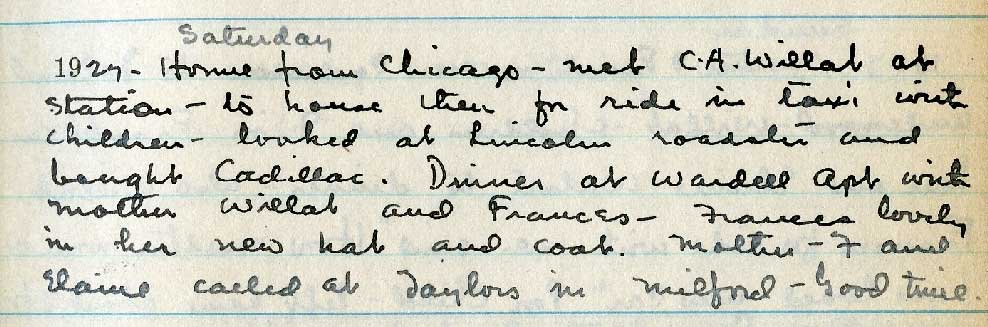 Saturday
1927- Home from Chicago - met C.A. Willat at
station - to house then for ride in taxi with
children - looked at Lincoln roadster and
bought Cadillac. Dinner at Wardell Apt with
mother Willat and Frances - Frances lovely
in her new hat and coat. Mother - F and
Elaine called at Taylors in Milford - Good time.